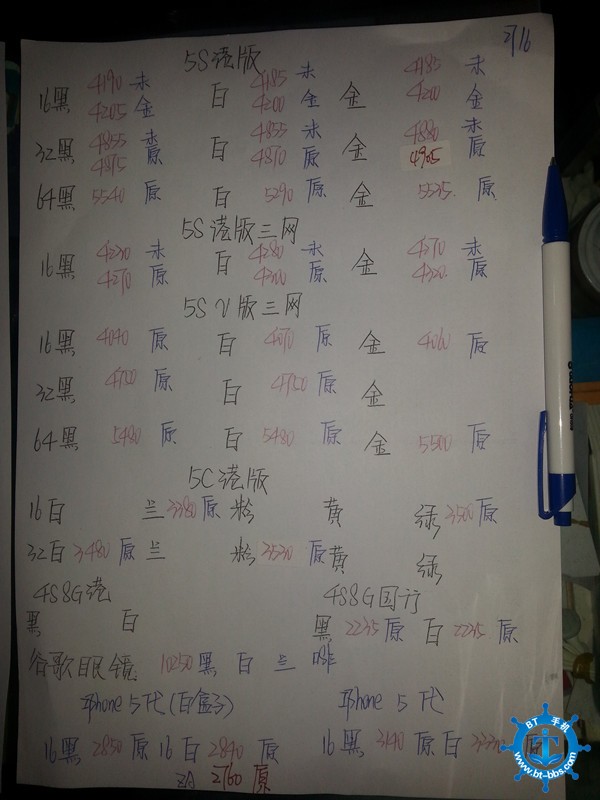 5S港版
2/16
16黑 4190 未 白 4185 未 金 4185 未
4205 金 4200 金 4200 金
32黑 4855 未 白 4855 未 金 4880 未
4875 原 4870 原 4905 原
64黑 5540 原 白 5290 原 金 原
5S港版三网
16黑 未 白 4280 未 金 4270 未
4270 原 原 原
5S V版三网
16黑 4040 原 白 4070 原 金 4060 原
32黑 4750 原 白 4750 原 金
64黑 5480 原 白 5480 原 金 5500 原
5C港版
16白 兰 3380 原 粉 黄 绿 3500 原
32白 3480 原 兰 粉 3530 原 黄 绿
4S8G港 4S8G国行
黑 白 黑 2235 原 白 2235 原
谷歌眼镜 10250 黑 白 兰 啡
Iphone 5代(白盒子) Iphone 5代
16黑 2850 原 16白 2840 原 16黑 3140 原 白 原
ZA 2760 原
BT 手机
www.bt-bbs.com